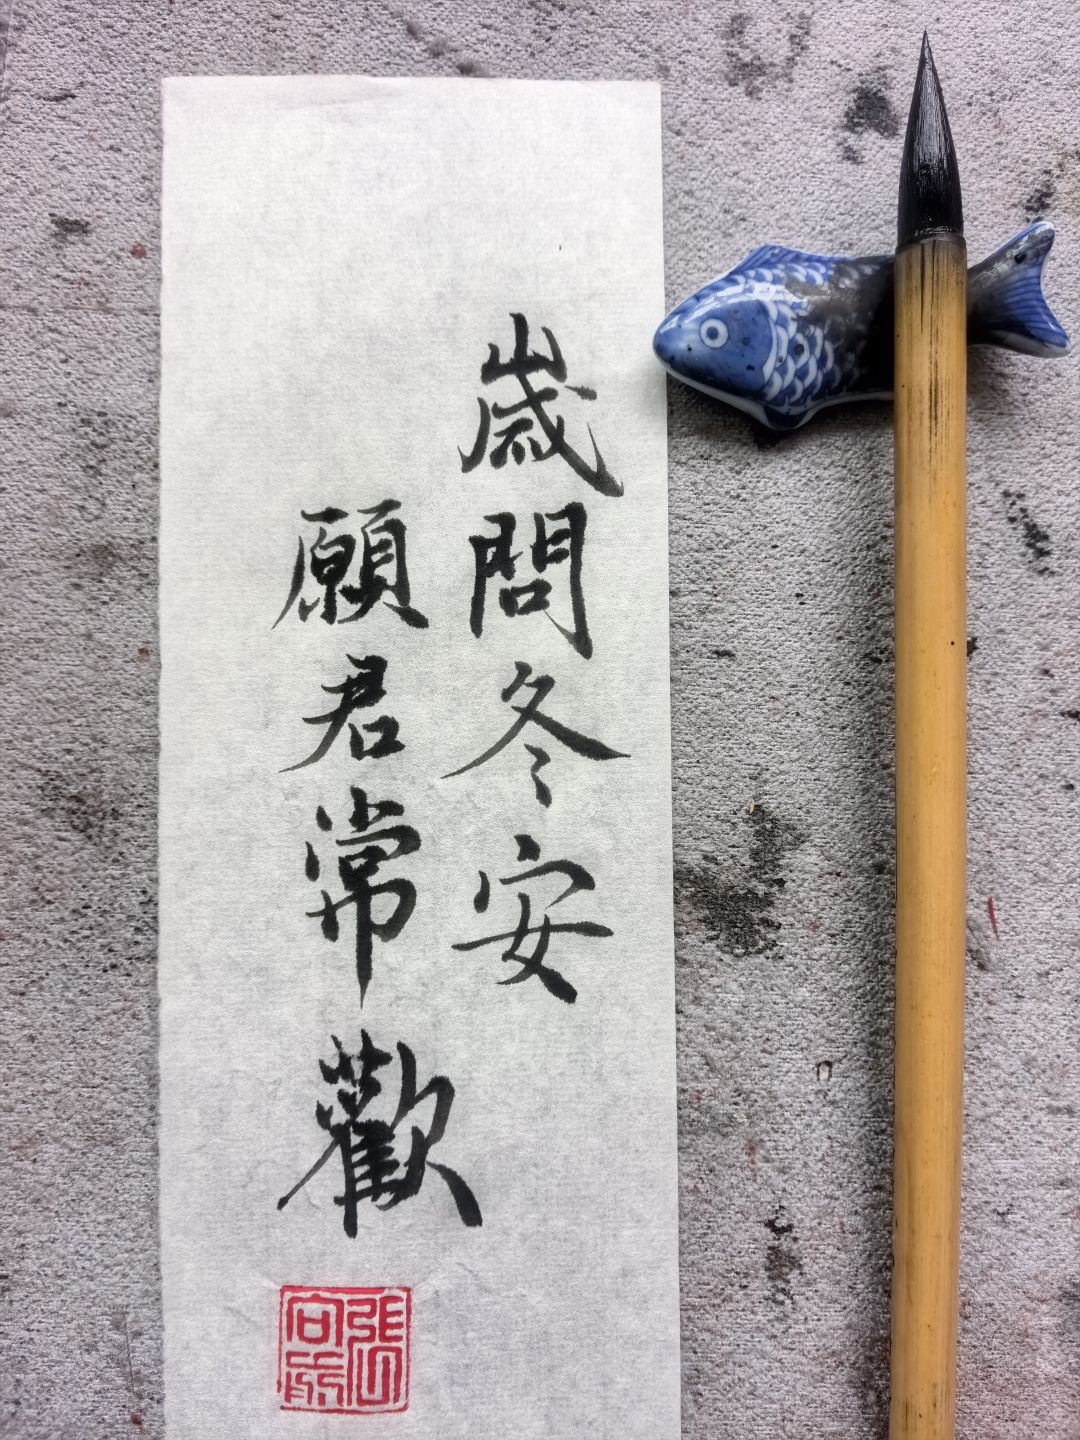 歲問冬安
願君常歡